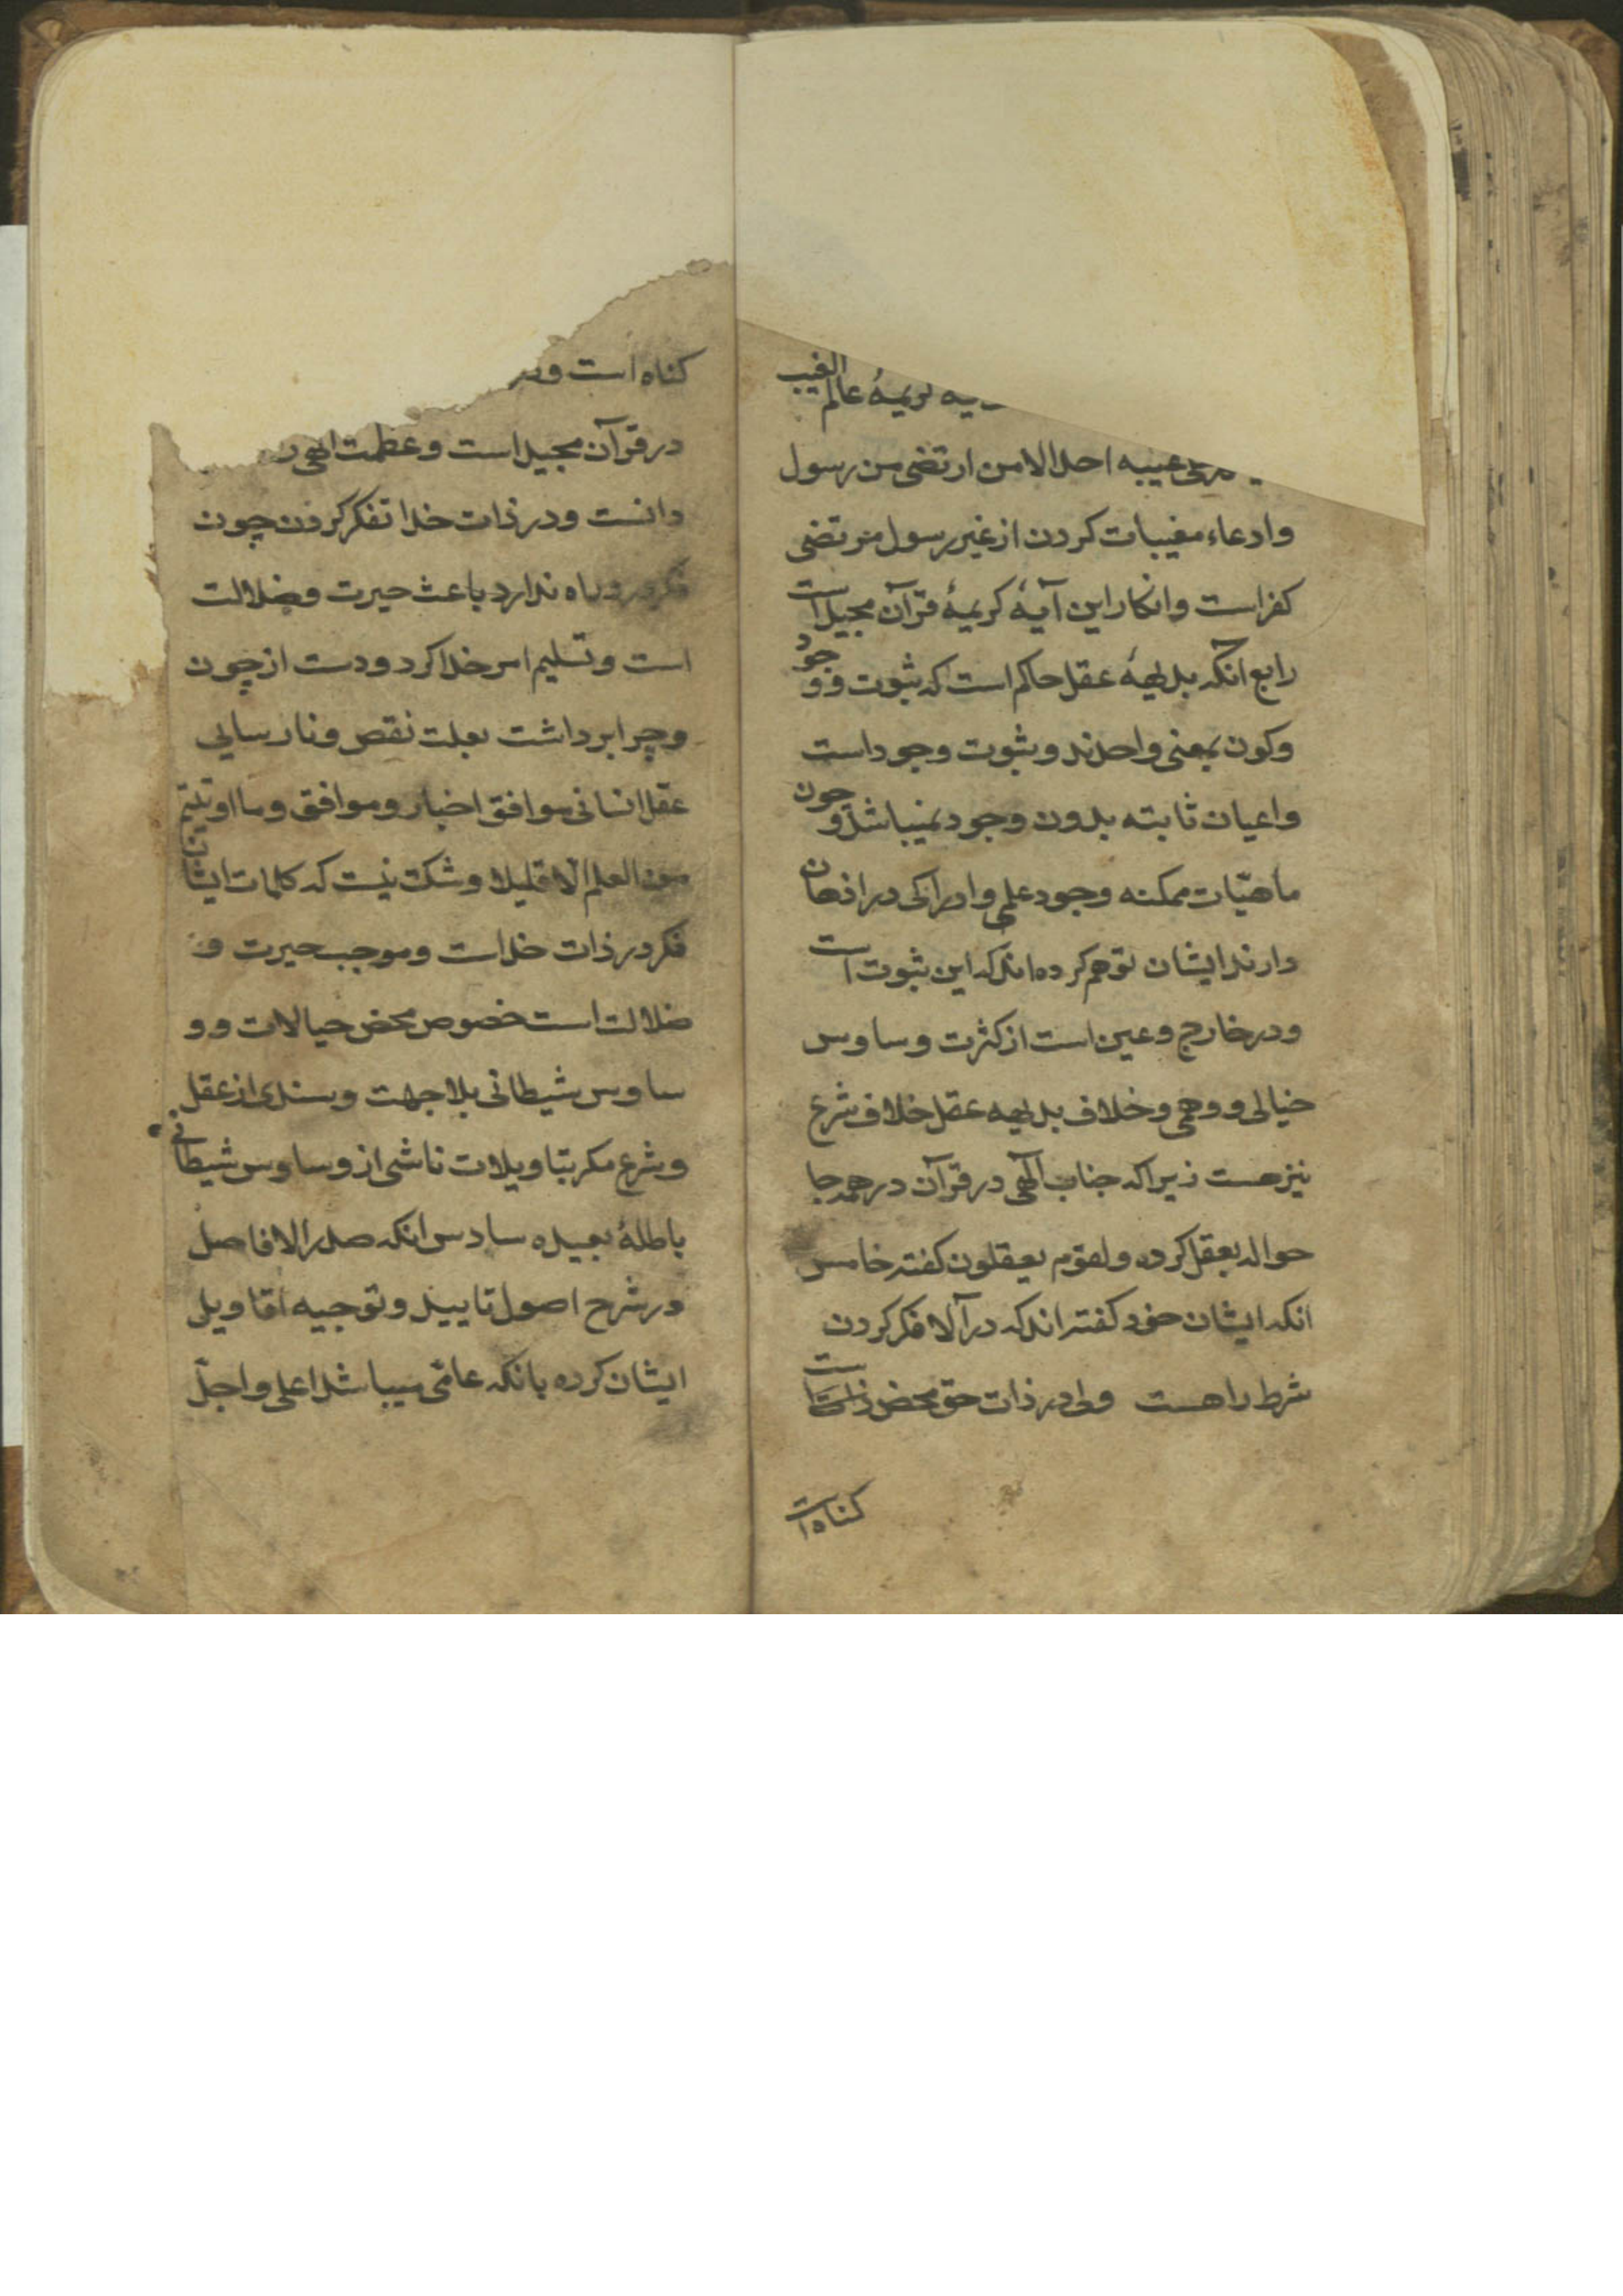 کریمهٔ عالم الغیب
غیبه احدا الا من ارتضی من رسول
وادعاء مغیبات کردن از غیر رسول مرتضی
کفر است وانکار این آیهٔ کریمهٔ قرآن مجید است
رابع انکه بدیههٔ عقل حاکم است که ثبوت و وجود
وکون بمعنی واحدند و ثبوت وجود است
واعیان ثابته بدون وجود نمیباشد و چون
ماهیّات ممکنه وجود علمی وادراکی در اذهان
دارند ایشان توهم کرده اند که این ثبوت است
و در خارج وعین است از کثرت وساوس
خیالی و وهمی وخلاف بدیهه عقل خلاف شرع
نیز هست زیرا که جناب الهی در قرآن در همه جا
حواله بعقل کرده و لقوم یعقلون کفته خامس
انکه ایشان خود کفته اند که در آلا فکر کردن
شرط راهست ولی در ذات حق محض کناه است
کناه است
کناه است و
در قرآن مجید است و عظمت الهی
دانست و در ذات خدا تفکر کردن چون
فکر در و راه ندارد باعث حیرت و ضلالت
است و تسلیم امر خدا کرد و دست از چون
و چرا برداشت بعلت نقص و نارسایی
عقل انسانی موافق اخبار و موافق وما اوتیتم
من العلم الا قلیلا و شک نیست که کلمات ایشان
فکر در ذات خداست و موجب حیرت و
ضلالت است خصوص محض خیالات و و
ساوس شیطانی بلا جهت و سندی از عقل
و شرع مکر بتاویلات ناشی از وساوس شیطانی
باطلهٔ بعیده سادس انکه صدر الافاضل
در شرح اصول تایید و توجیه اقاویل
ایشان کرده بانکه عامّی میباشد اعلی و اجلّ